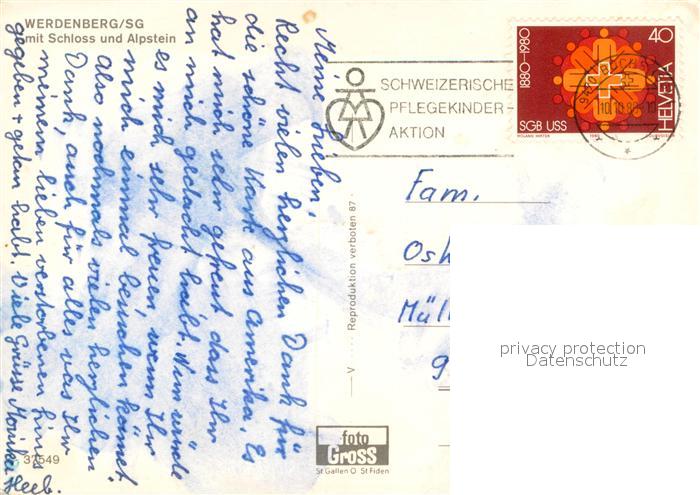 WERDENBERG/SG
mit Schloss und Alpstein
Meine Lieben,
Recht vielen herzlichen Dank für
die schöne Karte aus Amerika. Es
hat mich sehr gefreut dass Ihr
an mich gedacht habt. Nun würde
es mich sehr freuen, wenn Ihr
mich einmal besuchen kömmt.
Also nohmals vielen herzlichen
Dank, auch für alles was Ihr
meinem lieben verstorbenen
gegeben + getan habt. Viele Grüsse Monika
Heeb.
37549
V
Reproduktion verboten 87
foto
Gross
St Gallen O St Fiden
SCHWEIZERISCHE
PFLEGEKINDER-
AKTION
1880-1980
40
HELVETIA
SGB USS
1980
10.10.80
Fam.
Osh
Müll
9
privacy protection
Datenschutz